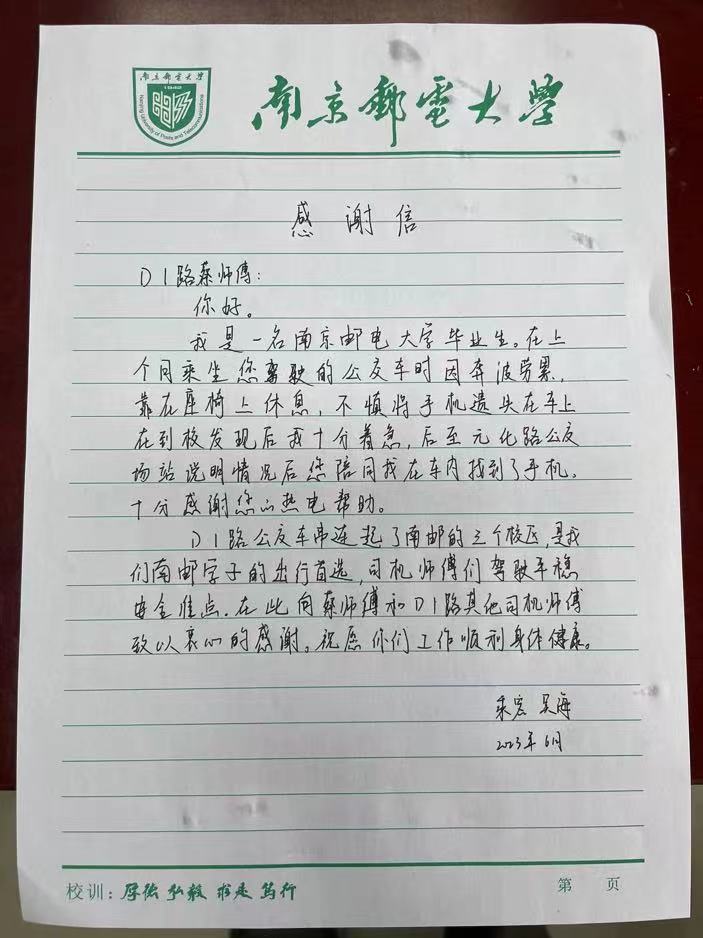 南京郵電大學
1942
Nanjing University of Posts and Telecommunications
南京郵電大學
感谢信
D1路蔡师傅:
你好。
我是一名南京邮电大学毕业生。在上
个月乘坐您驾驶的公交车时因奔波劳累,
靠在座椅上休息,不慎将手机遗失在车上
在到校发现后我十分着急,后至元化路公交
场站说明情况后您陪同我在车内找到了手机。
十分感谢您的热电帮助。
D1路公交车串连起了南邮的三个校区,是我
们南邮学子的出行首选,司机师傅们驾驶平稳
安全准点.在此向蔡师傅和D1路其他司机师傅
致以衷心的感谢。祝愿你们工作顺利身体健康。
吴海
2023年6月
校训:厚德 弘毅 求是 笃行
第 页